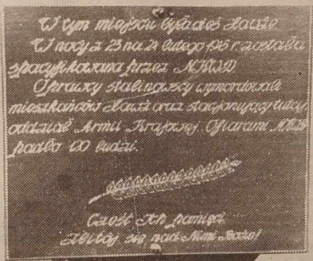 W tym miejscu była wieś Jeziorki.
W nocy z 23 na 24 lutego 1945 r. została
spacyfikowana przez NKWD.
Oprawcy stalinowscy wymordowali
mieszkańców oraz stacjonujący tutaj
oddział Armii Krajowej. Ofiarami NKWD
padło 60 ludzi.
Cześć Ich pamięci
Zlituj się nad Nimi Boże!